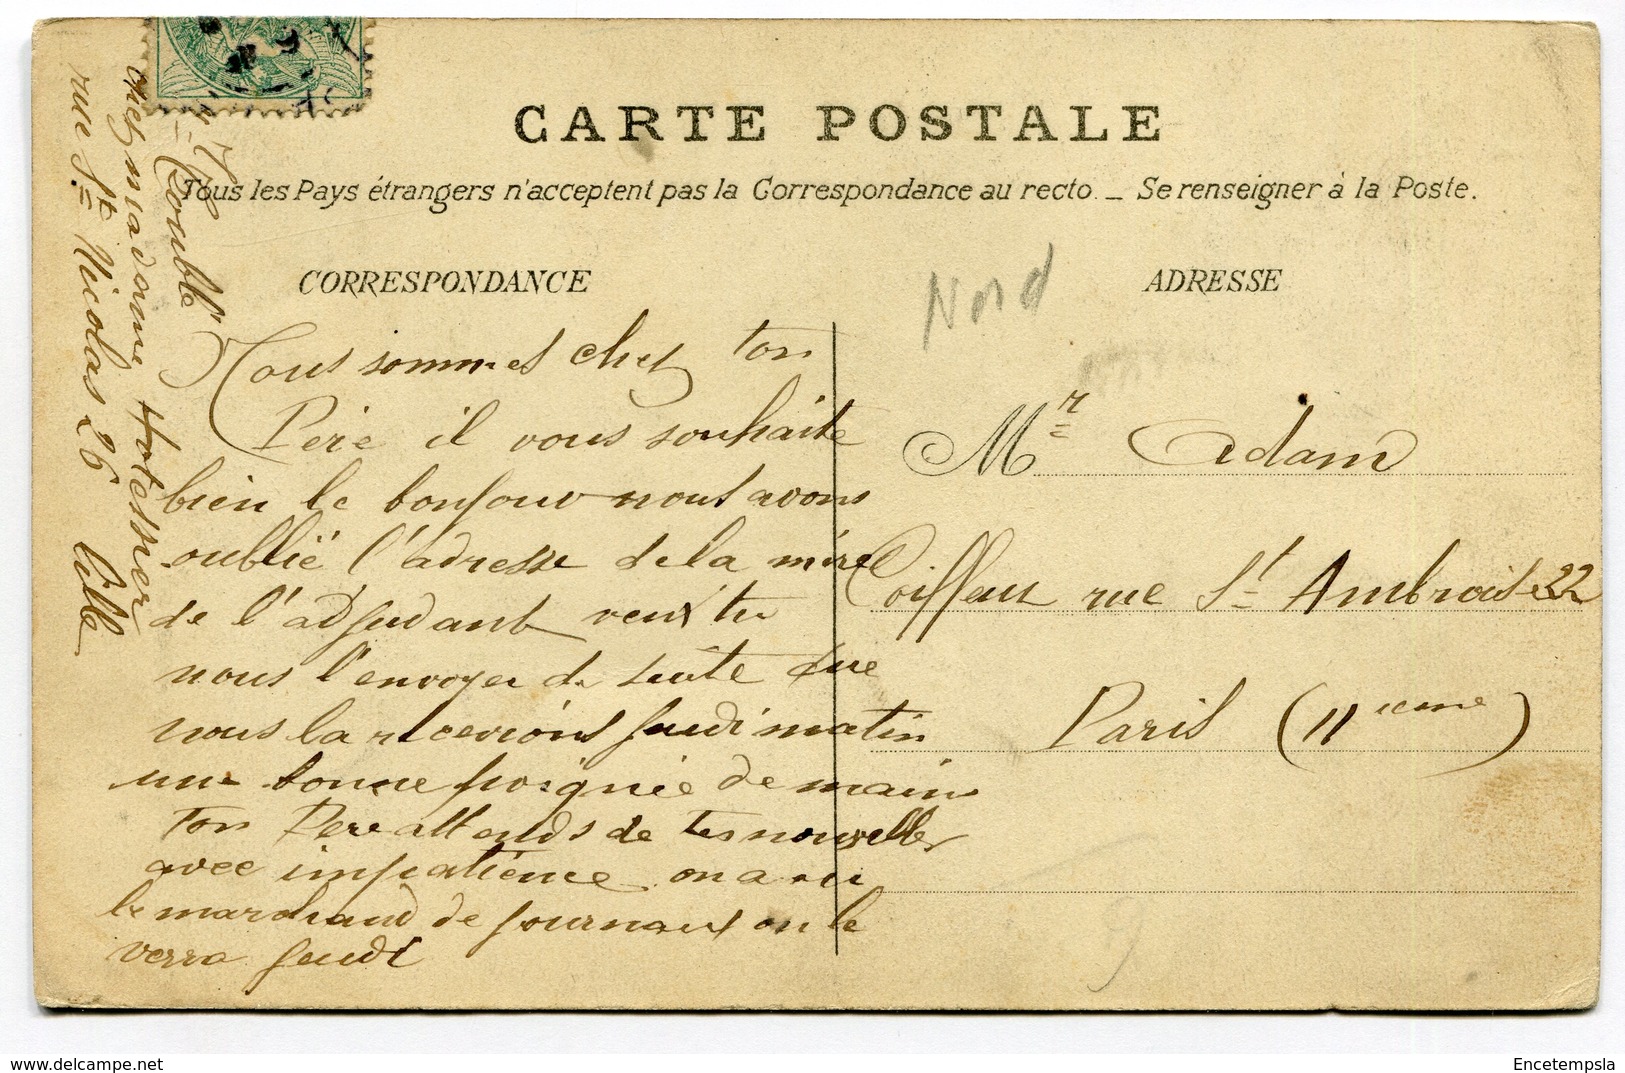 CARTE POSTALE
Tous les Pays étrangers n'acceptent pas la Correspondance au recto. _ Se renseigner à la Poste.
CORRESPONDANCE
Nous sommes chez ton
Père il vous souhaite
bien le bonjour nous avons
oublié l'adresse de la mère
de l'adjudant veux tu
nous l'envoyer de suite que
nous la recevions jeudi matin
une bonne poignée de main
ton Père attends de tes nouvelles
avec impatience on a vu
le marchand de journaux on le
verra jeudi
Double
chez madame Hotessier
rue St Nicolas 26 Lille
Nord
ADRESSE
Mr Adam
Coiffeur rue St Ambroise 22
Paris (11ieme)
www.delcampe.net
Encetempsla